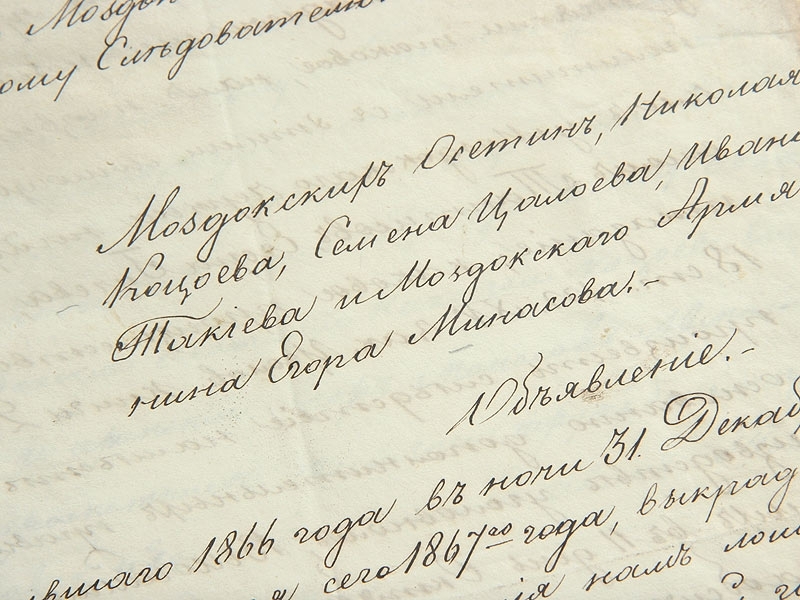 Моздок
ому Слѣдователю
Моздокскихъ Осетинъ, Николая
Коцоева, Семена Цалоева, Ивана
Такіева и Моздокскаго Армя
нина Егора Минасова.-
Объявленіе.-
вшаго 1866 года въ ночи 31. Декаб
сего 1867го года, выкрад
намъ лош